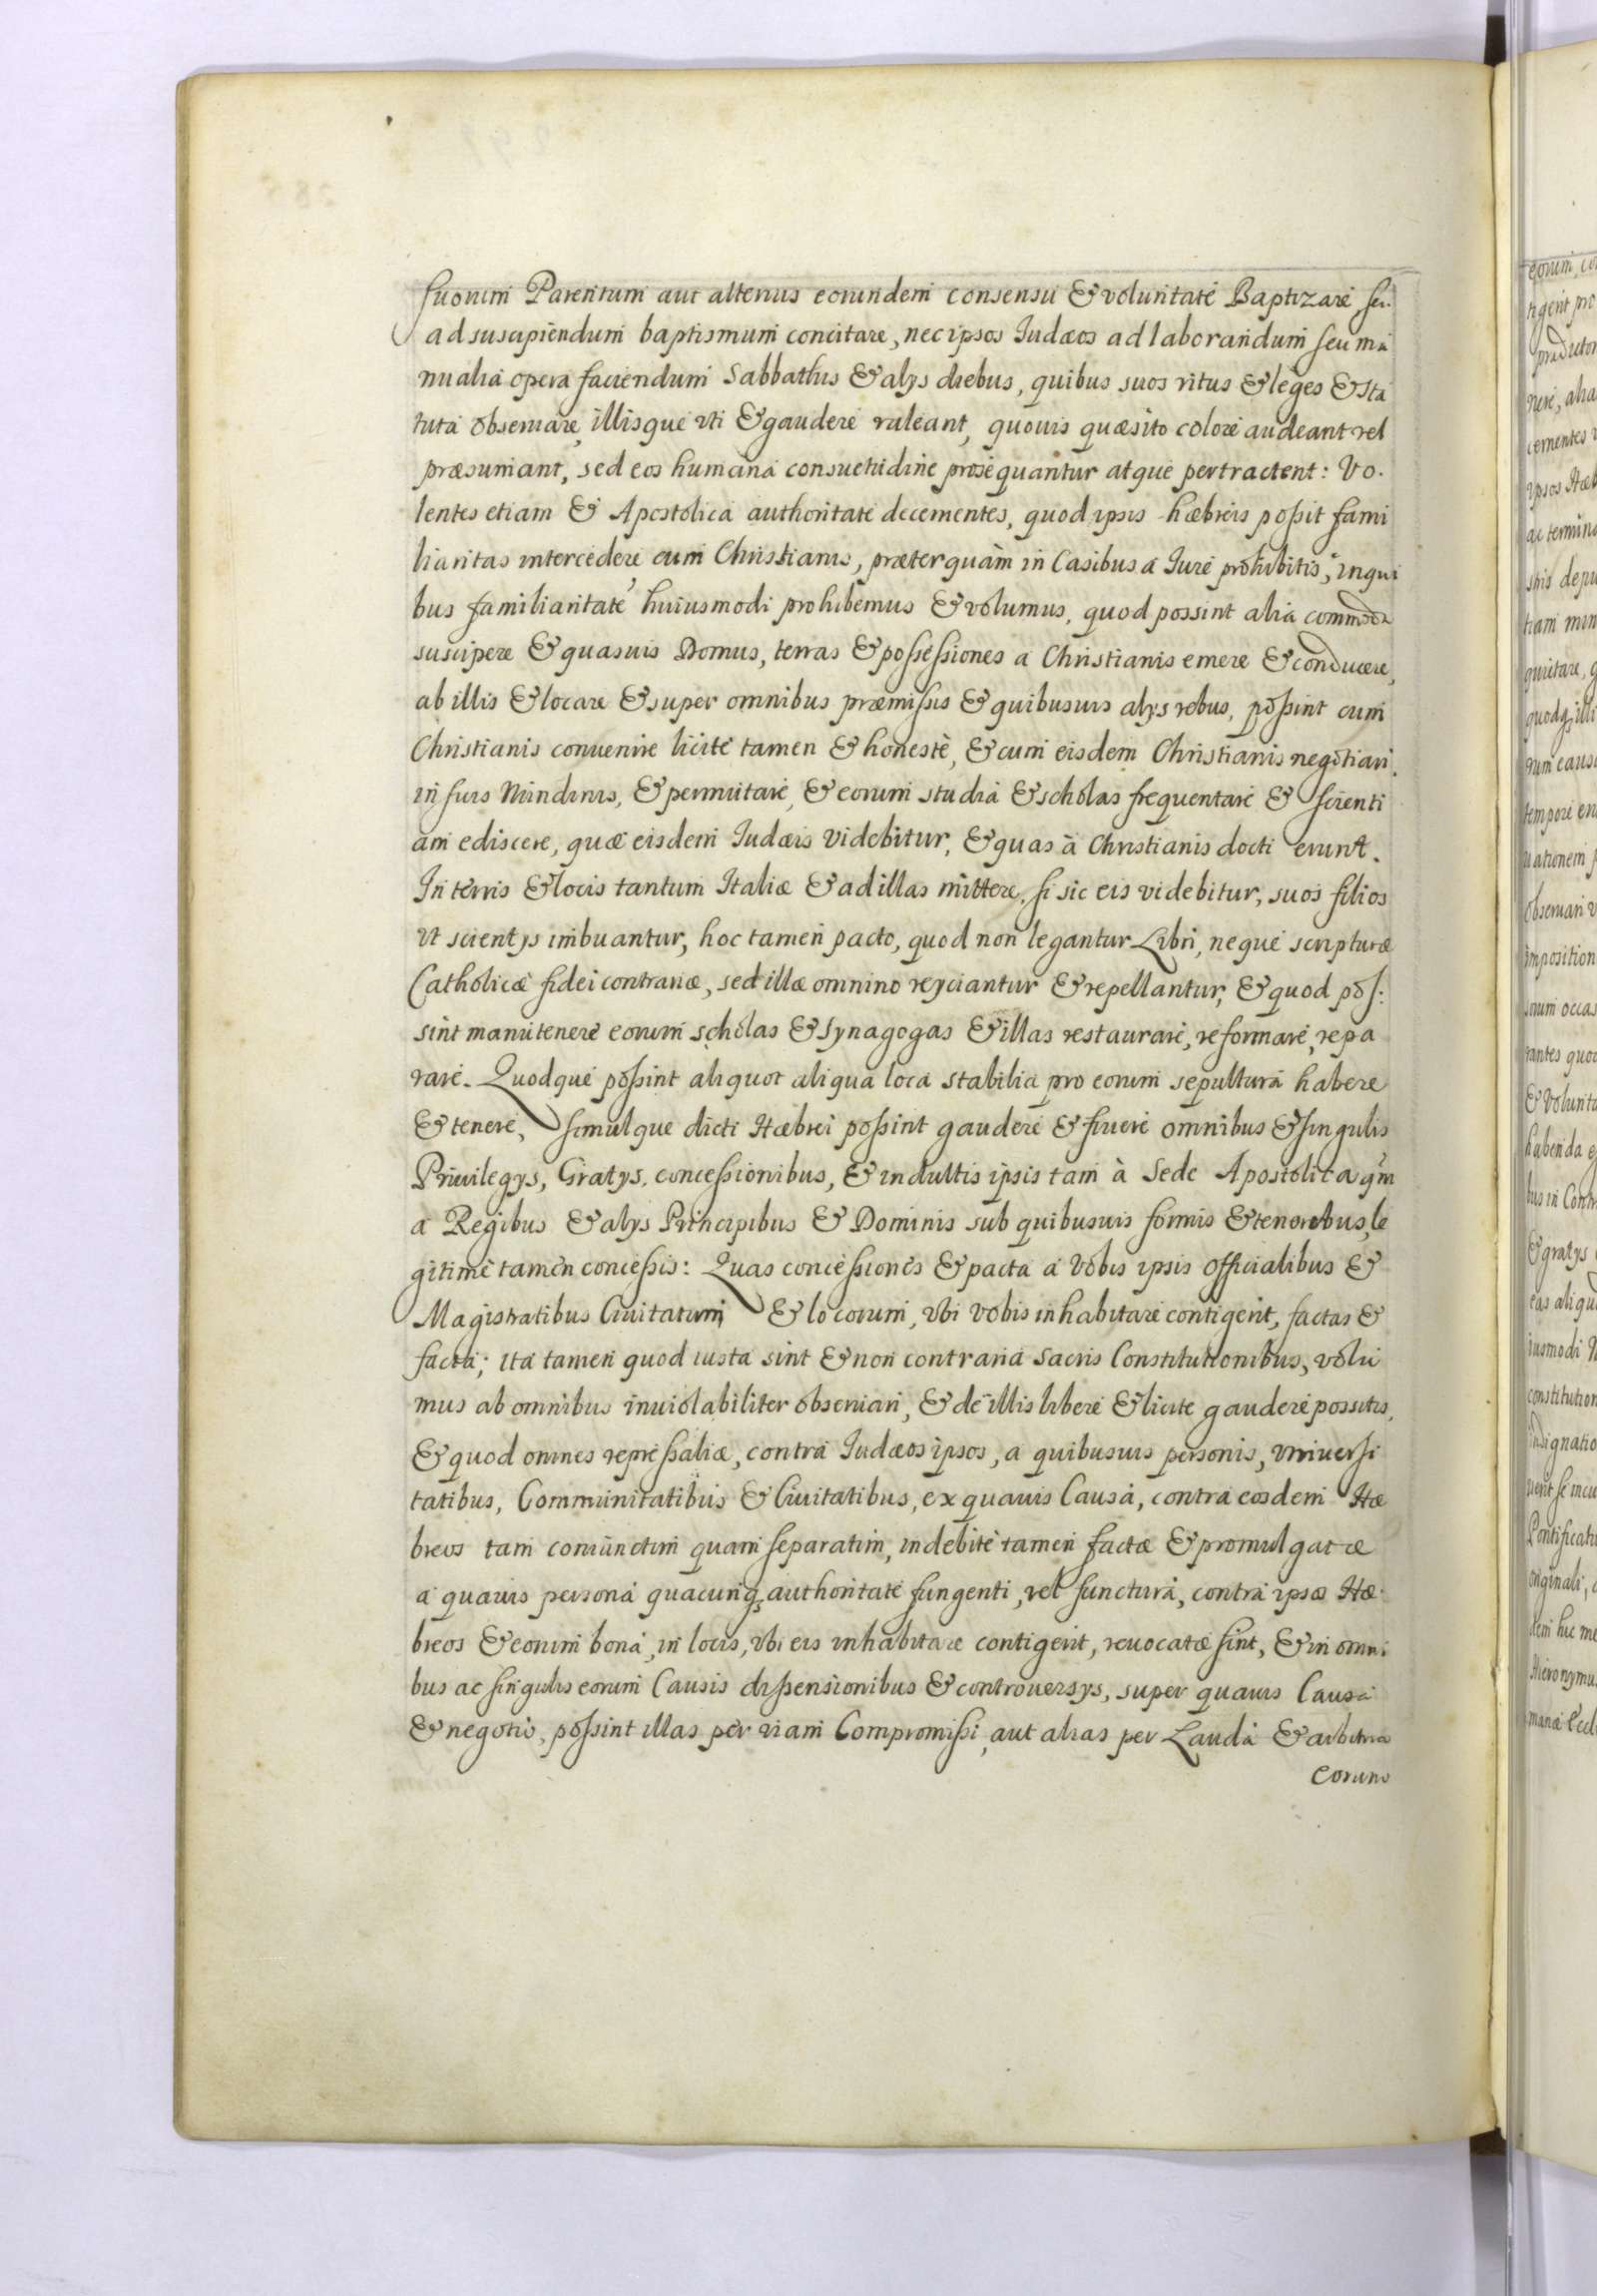 suorum Parentum aut alterius eorundem consensu & voluntate Baptizare, seu
ad suscipiendum baptismum concitare, nec ipsos Iudæos ad laborandum seu ma
nualia opera faciendum Sabbathis & alys diebus, quibus suos ritus & leges & sta
tuta obseruare, illisque vti & gaudere valeant, quouis quæsito colore audeant vel
præsumant, sed eos humana consuetudine prosequantur atque pertractent: Vo.
lentes etiam & Apostolica authoritate decernentes, quod ipsis hæbreis possit fami
liaritas intercedere cum Christianis, præterquàm in Casibus a Iure prohibitis, in qui
bus familiaritate huiusmodi prohibemus & volumus, quod possint alia commoda
suscipere & quasuis Domus, terras & possessiones a Christianis emere & conducere,
ab illis & locare & super omnibus præmissis & quibusuis alys rebus, possint cum
Christianis conuenire licitè tamen & honestè, & cum eisdem Christianis negotiari,
in suis Nundinis, & permutare, & eorum studia & scholas frequentare & scienti
am ediscere, quæ eisdem Iudæis videbitur, & quas à Christianis docti erunt.
In terris & locis tantum Italiæ & ad illas mittere, si sic eis videbitur, suos filios
vt scientys imbuantur, hoc tamen pacto, quod non legantur Libri, neque scripturæ
Catholicæ fidei contrariæ, sed illæ omnino reyciantur & repellantur, & quod pos:
sint manutenere eorum scholas & synagogas & illas restaurare, reformare, repa
rare. Quodque possint aliquot aliqua loca stabilia pro eorum sepultura habere
& tenere, simulque dicti Hæbrei possint gaudere & fruere omnibus & singulis
Priuilegys, Gratys, concessionibus, & indultis ipsis tam à Sede Apostolica qm
a Regibus & alys Principibus & Dominis sub quibusuis formis & tenoribus, le
gitimè tamen concessis: Quas concessiones & pacta a vobis ipsis officialibus &
Magistratibus Ciuitatum, & locorum, vbi vobis inhabitare contigerit, factas &
facta; ita tamen quod iusta sint & non contraria sacris Constitutionibus, volu
mus ab omnibus inuiolabiliter obseruari, & de illis libere & licite gaudere possitis,
& quod omnes repressaliæ, contra Iudæos ipsos, a quibusuis personis, vniuersi
tatibus, Communitatibus & Ciuitatibus, ex quauis Causa, contra eosdem Hæ
breos tam coniunctim quam separatim, indebitè tamen factæ & promulgatæ
a quauis persona quacunq; authoritate fungenti, vel functura, contra ipsos Hæ
breos & eorum bona, in locis, vbi eis inhabitare contigerit, reuocatæ sint, & in omni
bus ac singulis eorum Causis dissensionibus & controuersys, super quauis Causa
& negotio, possint illas per viam Compromissi, aut alias per Lauda & arbitria
eorum